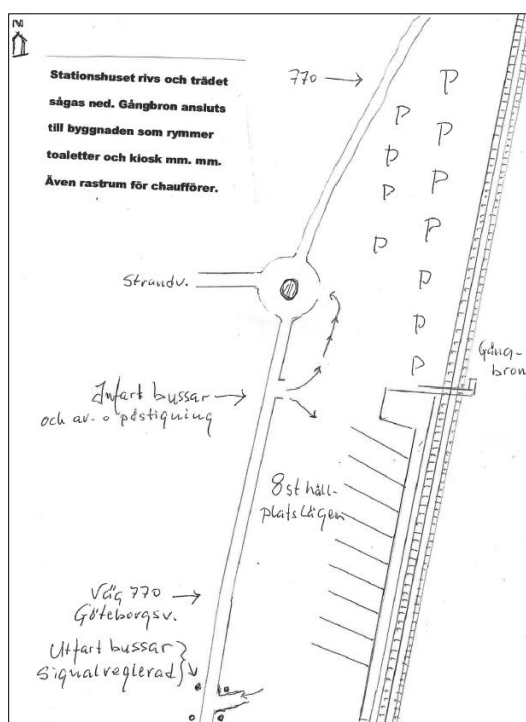 N
Stationshuset rivs och trädet
sågas ned. Gångbron ansluts
till byggnaden som rymmer
toaletter och kiosk mm. mm.
Även rastrum för chaufförer.
770
P
P
P
P
P
P
P
P
P
P
P
P
Strandv.
Gång-
bron
Infart bussar
och av- o påstigning
8st håll-
platslägen
Väg 770
Göteborgsv.
Utfart bussar
Signalreglerad